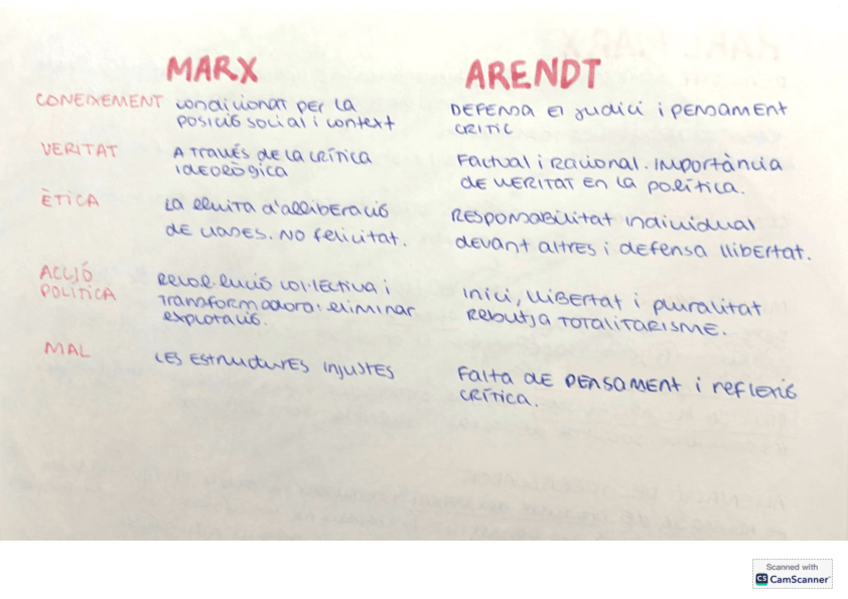 MARX
ARENDT
CONEIXEMENT condicionat per la
posició social i context
DEFENSA El judici i PENSAMENT
CRITIC
VERITAT A TRAVÉS DE LA CRÍTICA
IDEOLÒGICA
Factual i Racional. IMPORTÀNCIA
DE VERITAT EN LA POLÍTICA.
ÈTICA LA lluita d'alliberació
DE . NO felicitat.
RESPONSABILITAT individual
devant altres i defensa llibertat.
ACCIÓ
POLÍTICA
col·lectiva i
transformadora: eliminar
explotació.
Inici, llibertat i pluralitat
Rebutja TOTALITARISME.
MAL LES ESTRUCTURES INJUSTES
Falta de PENSAMENT i reflexió
CRÍTICA.
Scanned with
CS CamScanner